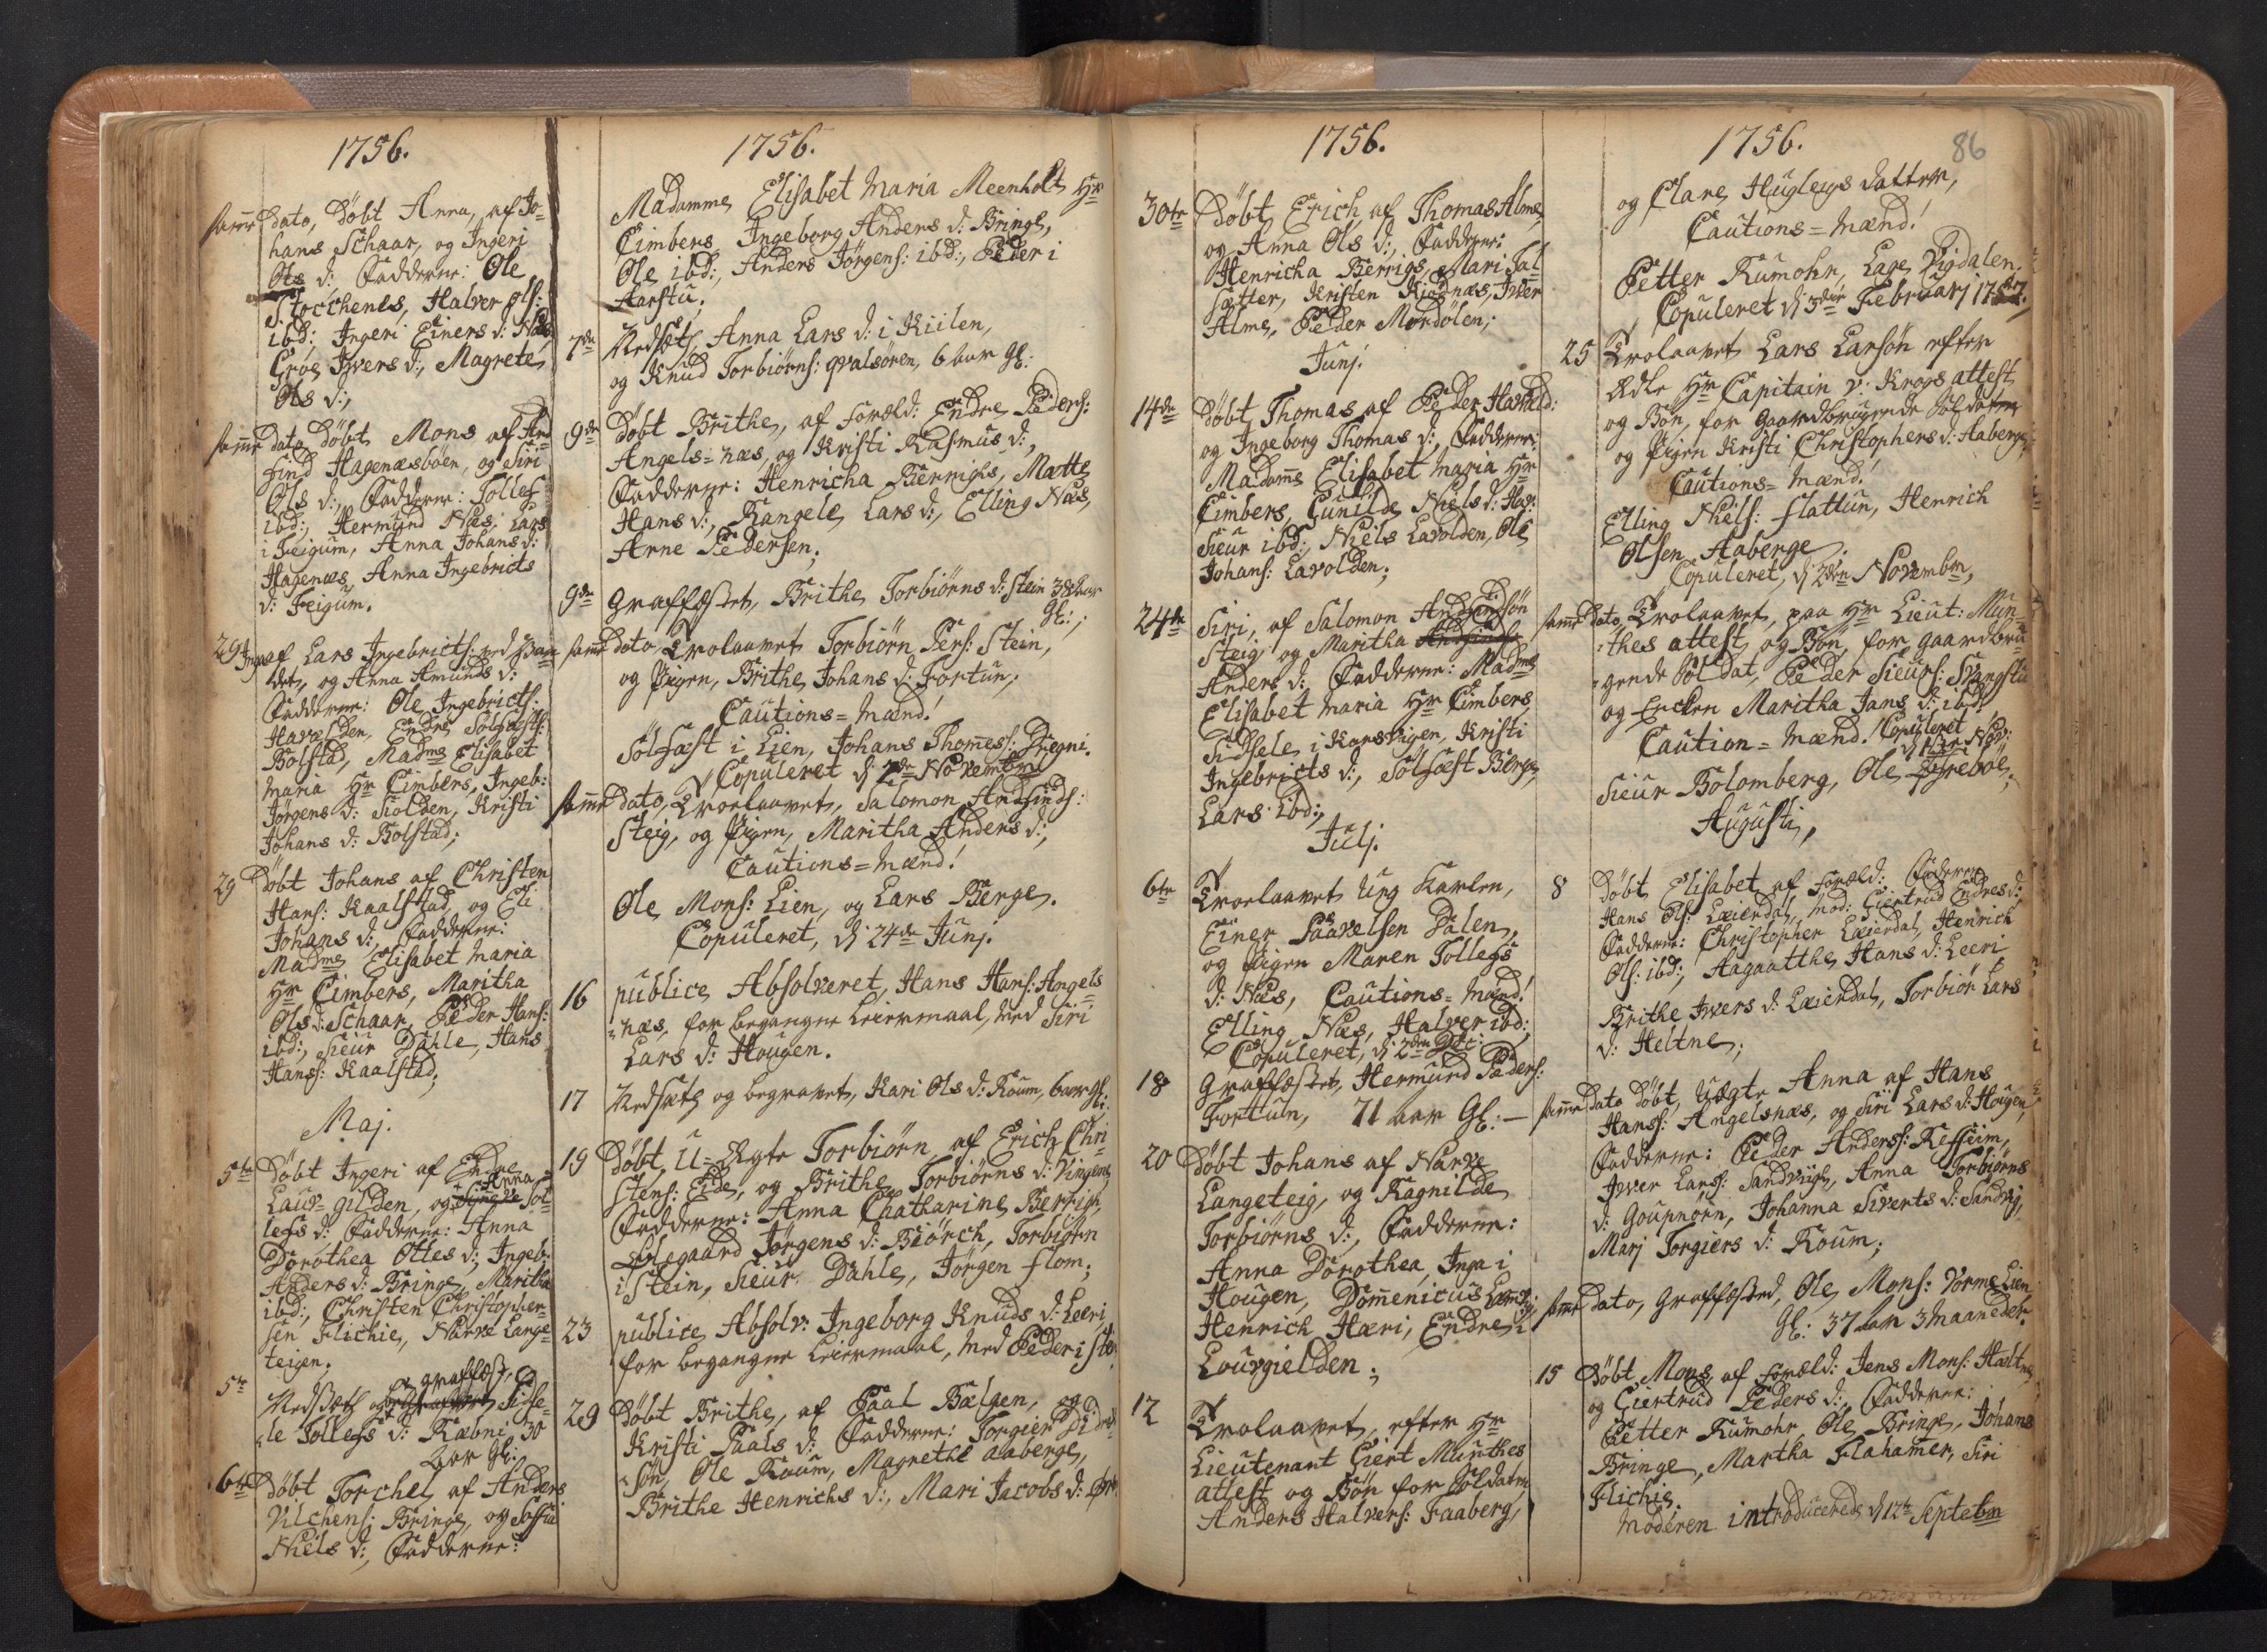 1756.
samme Dato, Døbt Anna, af Jo-
hans Schaar, og Ingeri
Ols d:, Fadderne: Ole
Stocchenes, Halver Ols:
ibd: Ingeri Einers d: Næs
Groe Ivers d:, Magrete
Ols d:,
samme Dato Døbt Mons af And
find Hagenæsbøen, og Siri
Ols d:, Fadderne: Tollef
ibd:, Hermund Næs, Lars
i Feigum, Anna Johans d:
Hagenæs, Anna Ingebricts
d: Feigum.
29 Inga af Lars Ingebricts:
og Anna Amunds d:
Fadderne: Ole Ingebricts:
Havelden, Endre Solfæsts:
Bolstad, Madme Elisabet
Maria Hr Cimbers, Ingeb:
Jørgens d: Siolden, Kristi
Johans d: Bolstad;
29 Døbt Johans af Christen
Hans: Kaalstad, og Eli
Johans d:, Fadderne:
Madme Elisabet Maria
Hr Cimbers, Maritha
Ols d: Schaar, Peder Hans:
ibd:, Sieur Dahle, Hans
Hans: Kaalstad;
Maj.
5te Døbt Ingeri af Endre
Laur-gilden, og Anna Tol-
lefs d: Fadderne: Anna
Dorothea Ottes d:, Ingeb:
Anders d: Bringe, Maritha
ibd:, Christen Christopher-
sen Flichie, Narve Lange-
teigen.
5te Nedsatt og graffæst, Sidse-
le Tollefs d: Ræbni 30
Aar Gl:
6te Døbt Torchel af Anders
Vilchens: Bringe, og Sossia
Niels d:, Fadderne:
1756.
Madamme Elisabet Maria Meenholt Hr
Cimbers, Ingeborg Anders d: Bringe,
Ole ibd:, Anders Jørgens: ibd:, Peder i
Aarstu;
7de Nedsatt Anna Lars d: i Kiilen,
og Knud Torbiørns: qvalsøren, 6 aar gl:
9de Døbt Brithe, af Foræld: Endre Peders:
Angels-næs, og Kristi Rasmus d:,
Fadderne: Henricha Berrighs, Matte
Hans d:, Rangele Lars d:, Elling Næs,
Arne Pedersen;
9de Graffæstet, Brithe Torbiørns d: Stein 38 aar
gl:;
samme dato, Trolaavet Torbiørn Pers: Stein,
og Pigen, Brithe Johans d: Fortun;
Cautions-Mænd!
Solfæst i Lien, Johans Thomess: Dregni.
Copuleret d 2de Novembr
samme dato, Troelaavet, Salomon Andfinds:
Steig, og Pigen, Maritha Anders d:,
Cautions-Mænd!
Ole Mons: Lien, og Lars Berge.
Copuleret, d 24de Junj.
16 publice Absolveret, Hans Hans: Angels
-næs, for begangne Leiermaal, med Siri
Lars d: Hougen.
17 Nedsatt og begravet, Kari Ols d: Roum, 6 aar gl:
19 Døbt, U-Ægte Torbiørn, af Erich Chri-
stens: Eide, og Brithe Torbiørns d: Vingens
Fadderne: Anna Chatharine Berrigh,
Ablegaard Jørgens d: Biørch, Torbiørn
i Stein, Sieur Dahle, Jørgen flom;
23 publice Absolv: Ingeborg Knuds d: Leeri
for begangne Leiermaal, med Peder i Ste
29 Døbt Brithe, af Paal Bælgen, og
Kristi Paals d: Fadderne: Torgier
søn, Ole Roum, Magrethe Aaberge,
Brithe Henrichs d:, Mari Jacobs d:
1756.
30te Døbt Erich af Thomas Alme,
og Anna Ols d:, Fadderne:
Henricha Berrigs, Mari Sal-
sætter, Kristen Kiødnæs, Iver
Alme, Peder Mordølen;
Junj.
14de Døbt Thomas af Peder Havheld:
og Ingeborg Thomas d:, Fadderne:
Madame Elisabet Maria Hr
Cimbers, Gunilde Niels d: Hav:
Sieur ibd:, Niels Lavolden, Ole
Johans: Lavolden;
24de Siri, af Salomon Andfindsøn
Steig, og Maritha
Anders d: Fadderne: Madme
Elisabet Maria Hr Cimbers,
Sidsele i Korsvigen, Kristi
Ingebricts d:, Solfæst Berge,
Lars ibd:;
Julj.
6te Troelaavet Ung Karlen,
Einer Paavelsen Dalen,
og Pigen Maren Tollefs
d: Næs, Cautions-Mænd!
Elling Næs, Halver ibd:,
Copuleret, d 2den Dec:
18 Graffæstet, Hermund Peders:
Fortun, 71 aar Gl:—
20 Døbt Johans af Narve
Langeteig, og Ragnilde
Torbiørns d:, Fadderne:
Anna Dorothea, Inga i
Hougen, Domenicus
Henrich Hæri, Endre i
Lourgielden;
12 Trolaavet, efter Hr
Lieutenant Giert Munthes
attest og Bøn for Soldaten
Anders Halvers: Faaberg,
1756. 86
og Clare Hugleigs datter,
Cautions-Mænd!
Petter Rumohr, Lage Digdalen.
Copuleret d 3die Februarj 1757.
25 Trolaavet Lars Larsøn efter
Ædle Hr Capitain v: Krogs attest
og Bøn, for gaardbrugende Soldaten
og Pigen Kristi Christophers d: Aaberge,
Cautions-Mænd!
Elling Niels: flattun, Henrich
Olsen Aaberge.
Copuleret, d 2den Novembr,
samme Dato, Trolaavet, paa Hr Lieut: Mun-
thes attest, og Bøn, for gaardbru-
gende Soldat, Peder Sieurs: Svangstu
og Encken Maritha Jans d: ibd:
Caution-Mænd! Copuleret
Nov:
Sieur Bolomberg, Ole Egrebøe;
Augusti,
8 Døbt Elisabet, af Foræld: Faderen
Hans Ols: Leierdal, Mod: Giertrud Endres d:
Fadderne: Christopher Leierdal, Henrich
Ols: ibd:, Aagaatthe Hans d: Leeri
Brithe Ivers d: Leierdal, Torbiør Lars
d: Heltne;
samme Dato Døbt, Uægte Anna af Hans
Hans: Angelsnæs, og Siri Lars d: Hougen,
Fadderne: Peder Anderss: Kesseim,
Iver Lars: Sandviigh, Anna Torbiørns
d: Goupnørn, Johanna Siverts d: Sandvig,
Marj Torgiers d: Roum;
samme dato, Graffæsted, Ole Mons: Vorme Lien
Gl: 37 Aar 3 Maaneder.
15 Døbt Mons, af Foræld: Jens Mons:
og Giertrud Peders d:, Fadderne:
Petter Rumohr, Ole Bringe, Johans
Bringe, Martha Flahamer, Siri
Flichie.
Moderen introducered d 12te Septebm